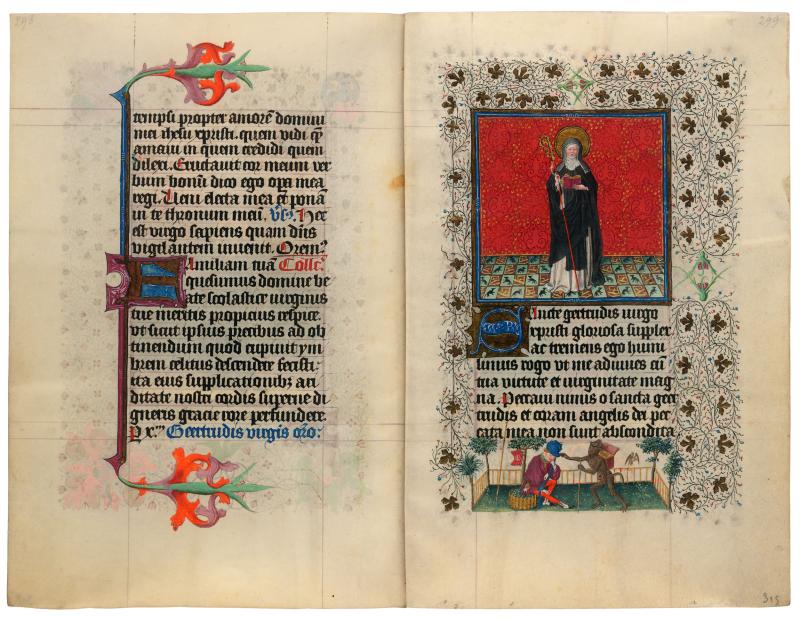 298
tempsi propter amorē domini
mei ihesu xpristi. quem vidi q̄
amaui in quem credidi quem
dilexi. Eructauit cor meum ver
bum bonū dico ego opa mea
regi. Ueni electa mea et ponā
in te thronum meū. Vs. Hec
est virgo sapiens quam dn̄s
vigilantem inuenit. Orem.
Amiliam tuā Collc̄.
quesumus domine be
ate scolastice uirginis
tue meritis propicius respice.
vt sicut ipsius precibus ad ob
tinendum quod cupiuit ym
brem celitus descendere fecisti.
ita eius supplicationibz ari
ditate nostri cordis superne di
gneris gracie rore perfundere.
P x. Geertrudis virgīs orō:
299
Sancte geertrudis uirgo
xpristi gloriosa supplex
ac tremens ego humi
limus rogo vt me adiuues cū
tua virtute et uirginitate mag
na. Peccaui nimis o sancta geer
trudis et coram angelis dei pec
cata mea non sunt abscondita
315